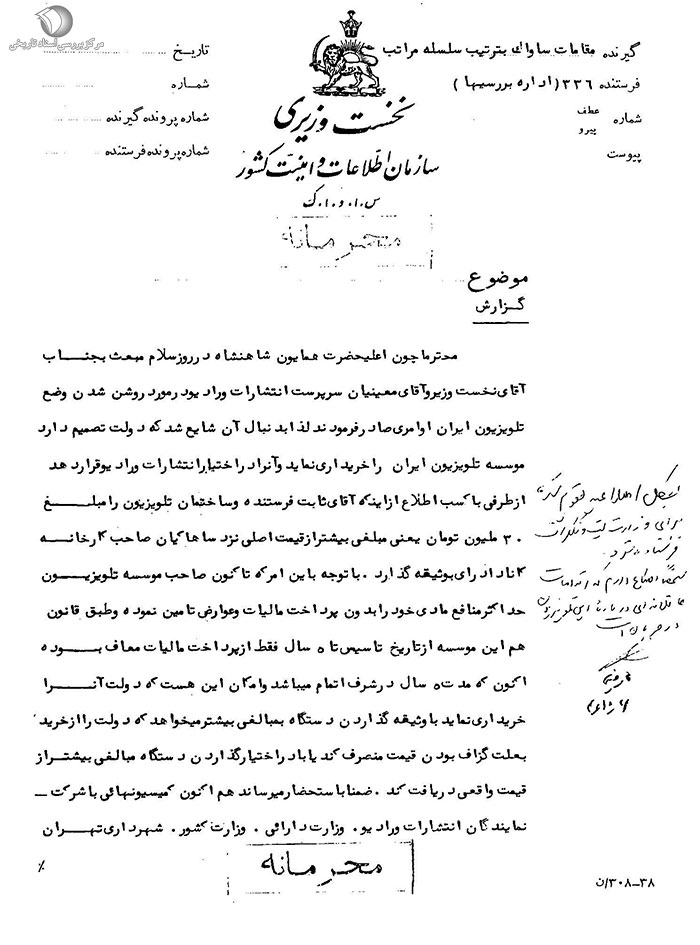 مرکز بررسی اسناد تاریخی
گیرنده مقامات ساواک بترتیب سلسله مراتب
فرستنده ۳۳۶ (اداره بررسیها)
شماره
عطف
پیرو
پیوست
تاریخ
شماره
شماره پرونده گیرنده
شماره پرونده فرستنده
نخست وزیری
سازمان اطلاعات و امنیت کشور
س.ا.و.ا.ک
محرمانه
موضوع
گزارش
محترما چون اعلیحضرت همایون شاهنشاه در روز سلام مبعث بجناب
آقای نخست وزیر و آقای معینیان سرپرست انتشارات و رادیو در مورد روشن شدن وضع
تلویزیون ایران اوامری صادر فرمودند لذا بدنبال آن شایع شد که دولت تصمیم دارد
موسسه تلویزیون ایران را خریداری نماید و آنرا در اختیار انتشارات و رادیو قرار دهد
از طرفی با کسب اطلاع از اینکه آقای ثابت فرستنده و ساختمان تلویزیون را مبلغ
۳۰ ملیون تومان یعنی مبلغی بیشتر از قیمت اصلی نزد ساهاکیان صاحب کارخانه
کانادا درای بوثیقه گذارد . با توجه باین امر که تاکنون صاحب موسسه تلویزیون
حداکثر منافع مادی خود را بدون پرداخت مالیات و عوارض تامین نموده و طبق قانون
هم این موسسه از تاریخ تاسیس تا ۵ سال فقط از پرداخت مالیات معاف بوده
اکنون که مدت ۵ سال در شرف اتمام میباشد و امکان این هست که دولت آنرا
خریداری نماید با وثیقه گذاردن دستگاه بمبالغی بیشتر میخواهد که دولت را از خرید
بعلت گزاف بودن قیمت منصرف کند یا با در اختیار گذاردن دستگاه مبالغی بیشتر از
قیمت واقعی دریافت کند . ضمنا باستحضار میرساند هم اکنون کمیسیونهائی با شرکت ـ
نمایندگان انتشارات و رادیو . وزارت دارائی . وزارت کشور . شهرداری تهران
محرمانه
٪
۳۸ـ۳۰۸/ن